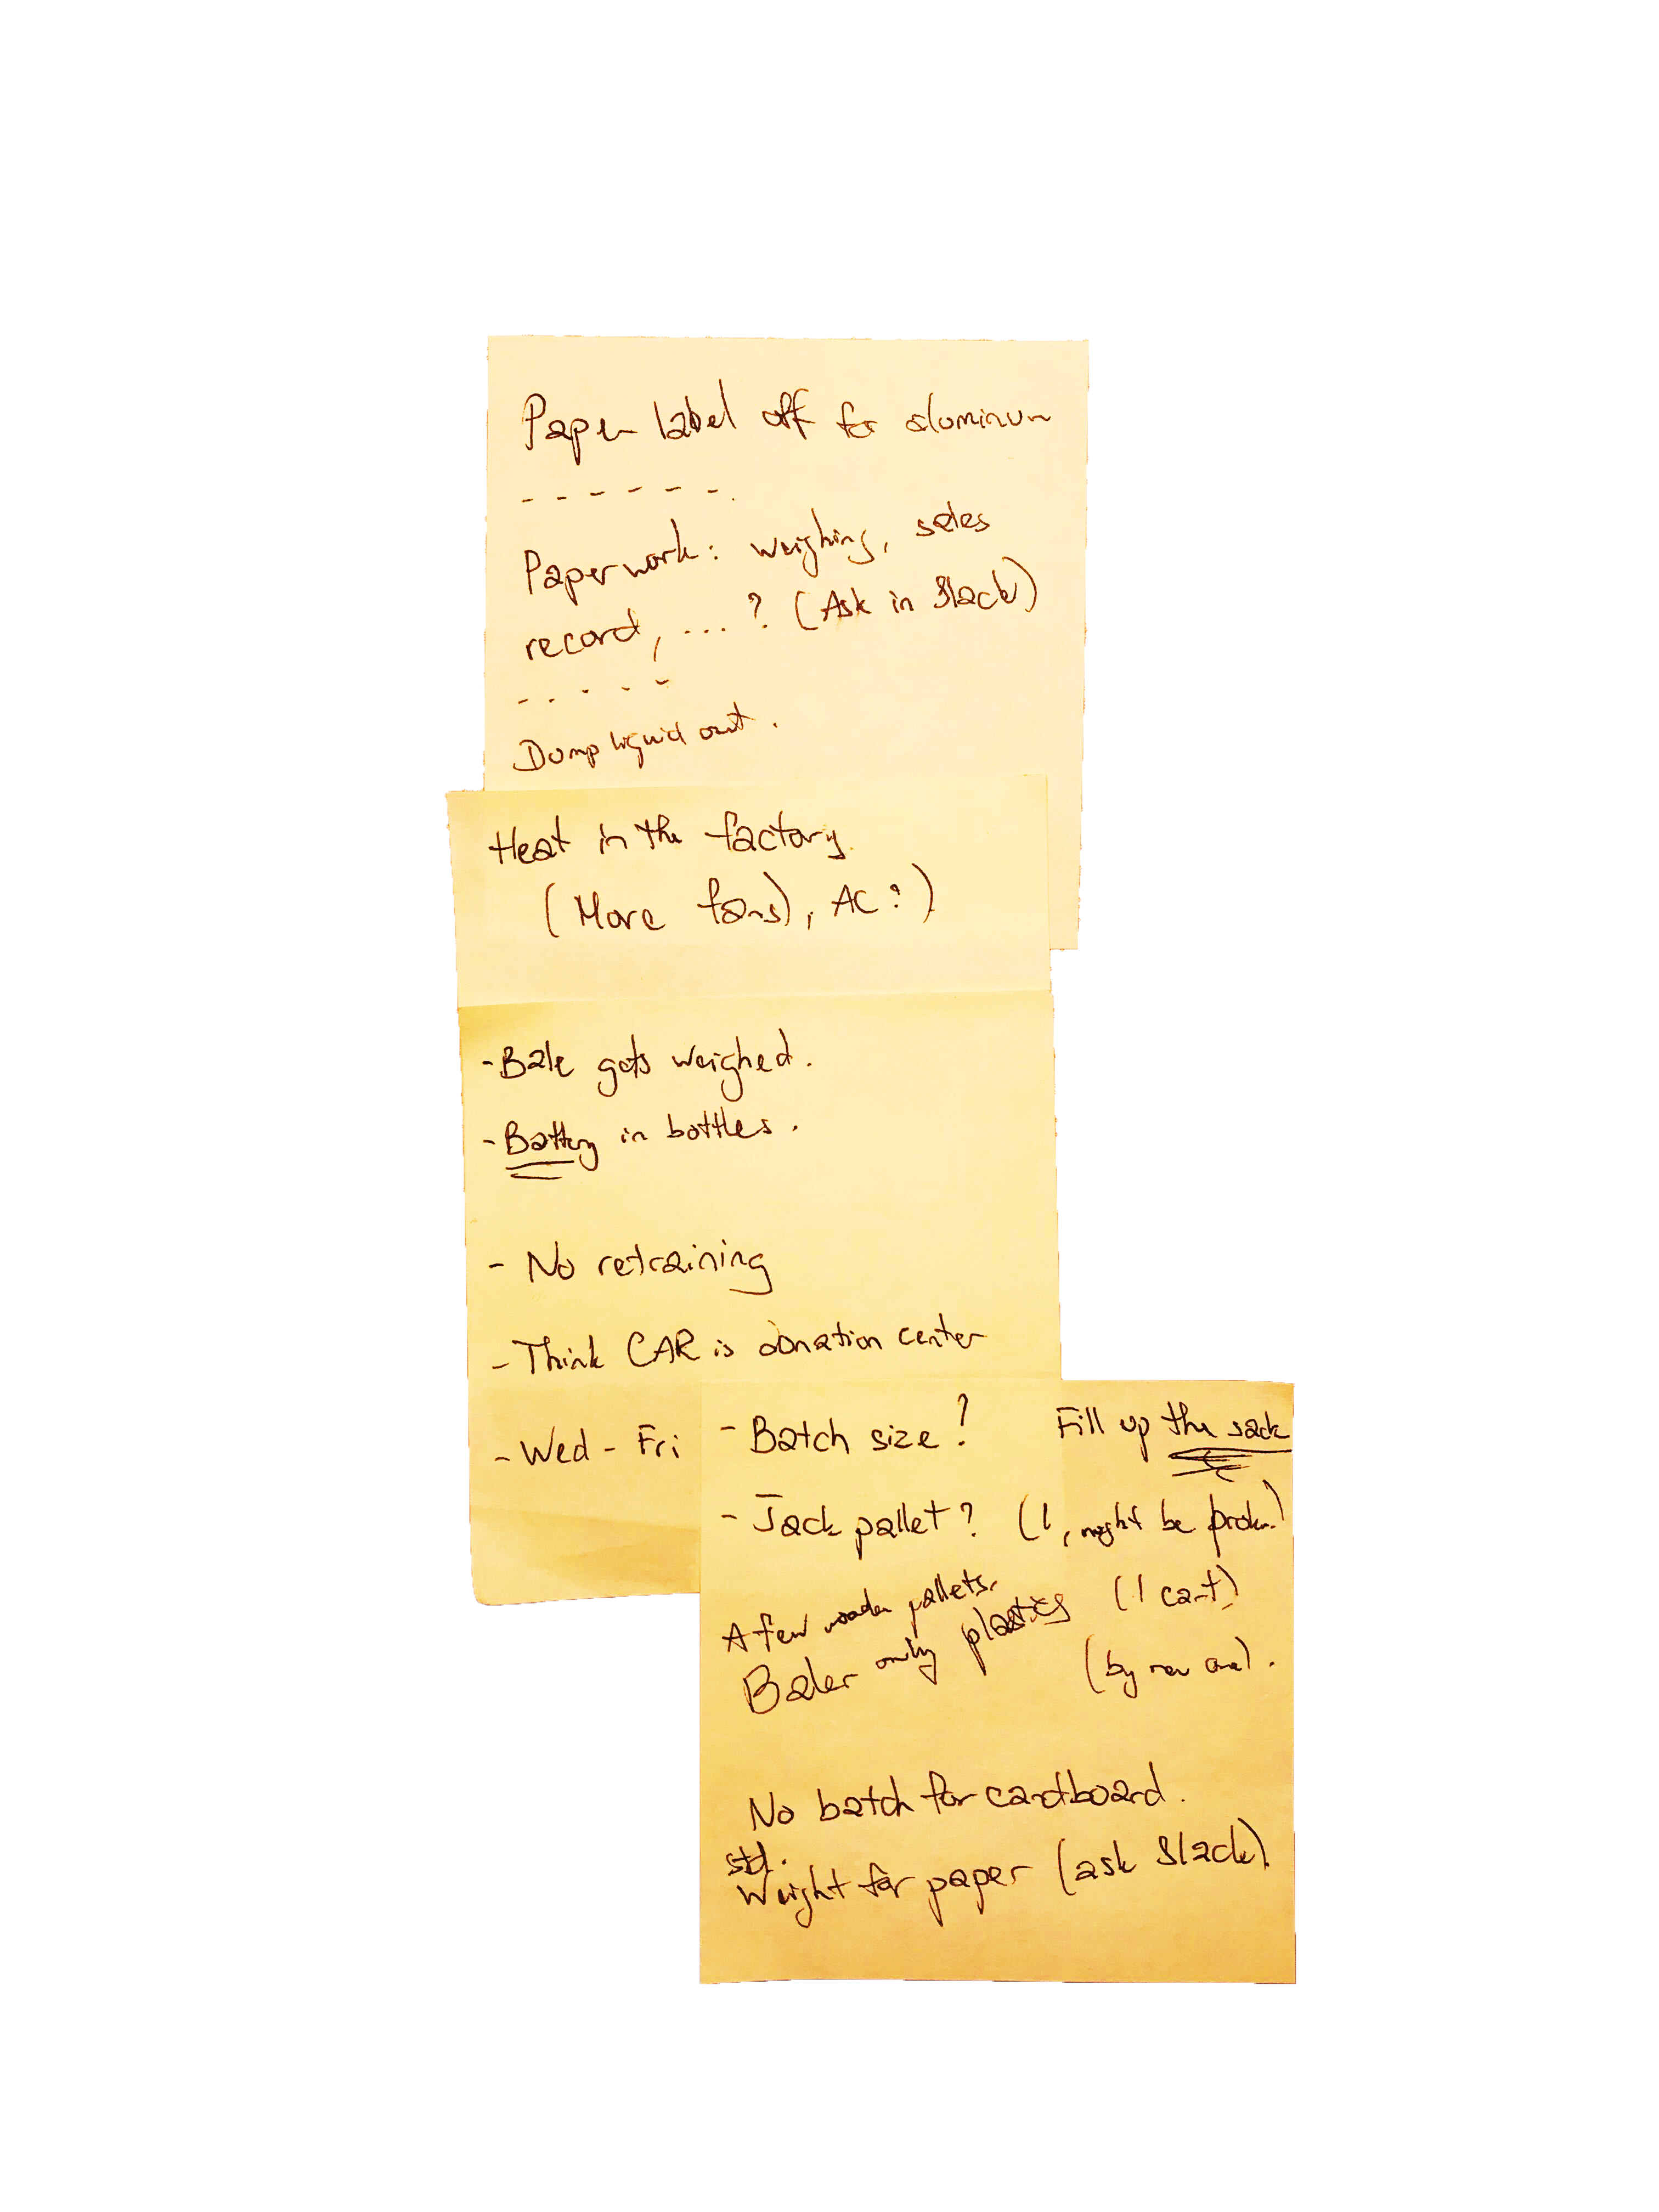 Paper label off for aluminum
- - - - - - -.
Paperwork: weighing, sales
record, ... ? (Ask in Slack)
- - - - -
Dump liquid out.
Heat in the factory.
(More fans), AC?)
- Bale gets weighed.
- Battery in bottles.
- No retraining
- Think CAR is donation center
- Wed - Fri
- Batch size? Fill up the sack
- Jack pallet? (1, might be broken)
A few wooden pallets. (1 cart)
Baler only plastics (by new one).
No batch for cardboard.
std.
Weight for paper (ask Slack).